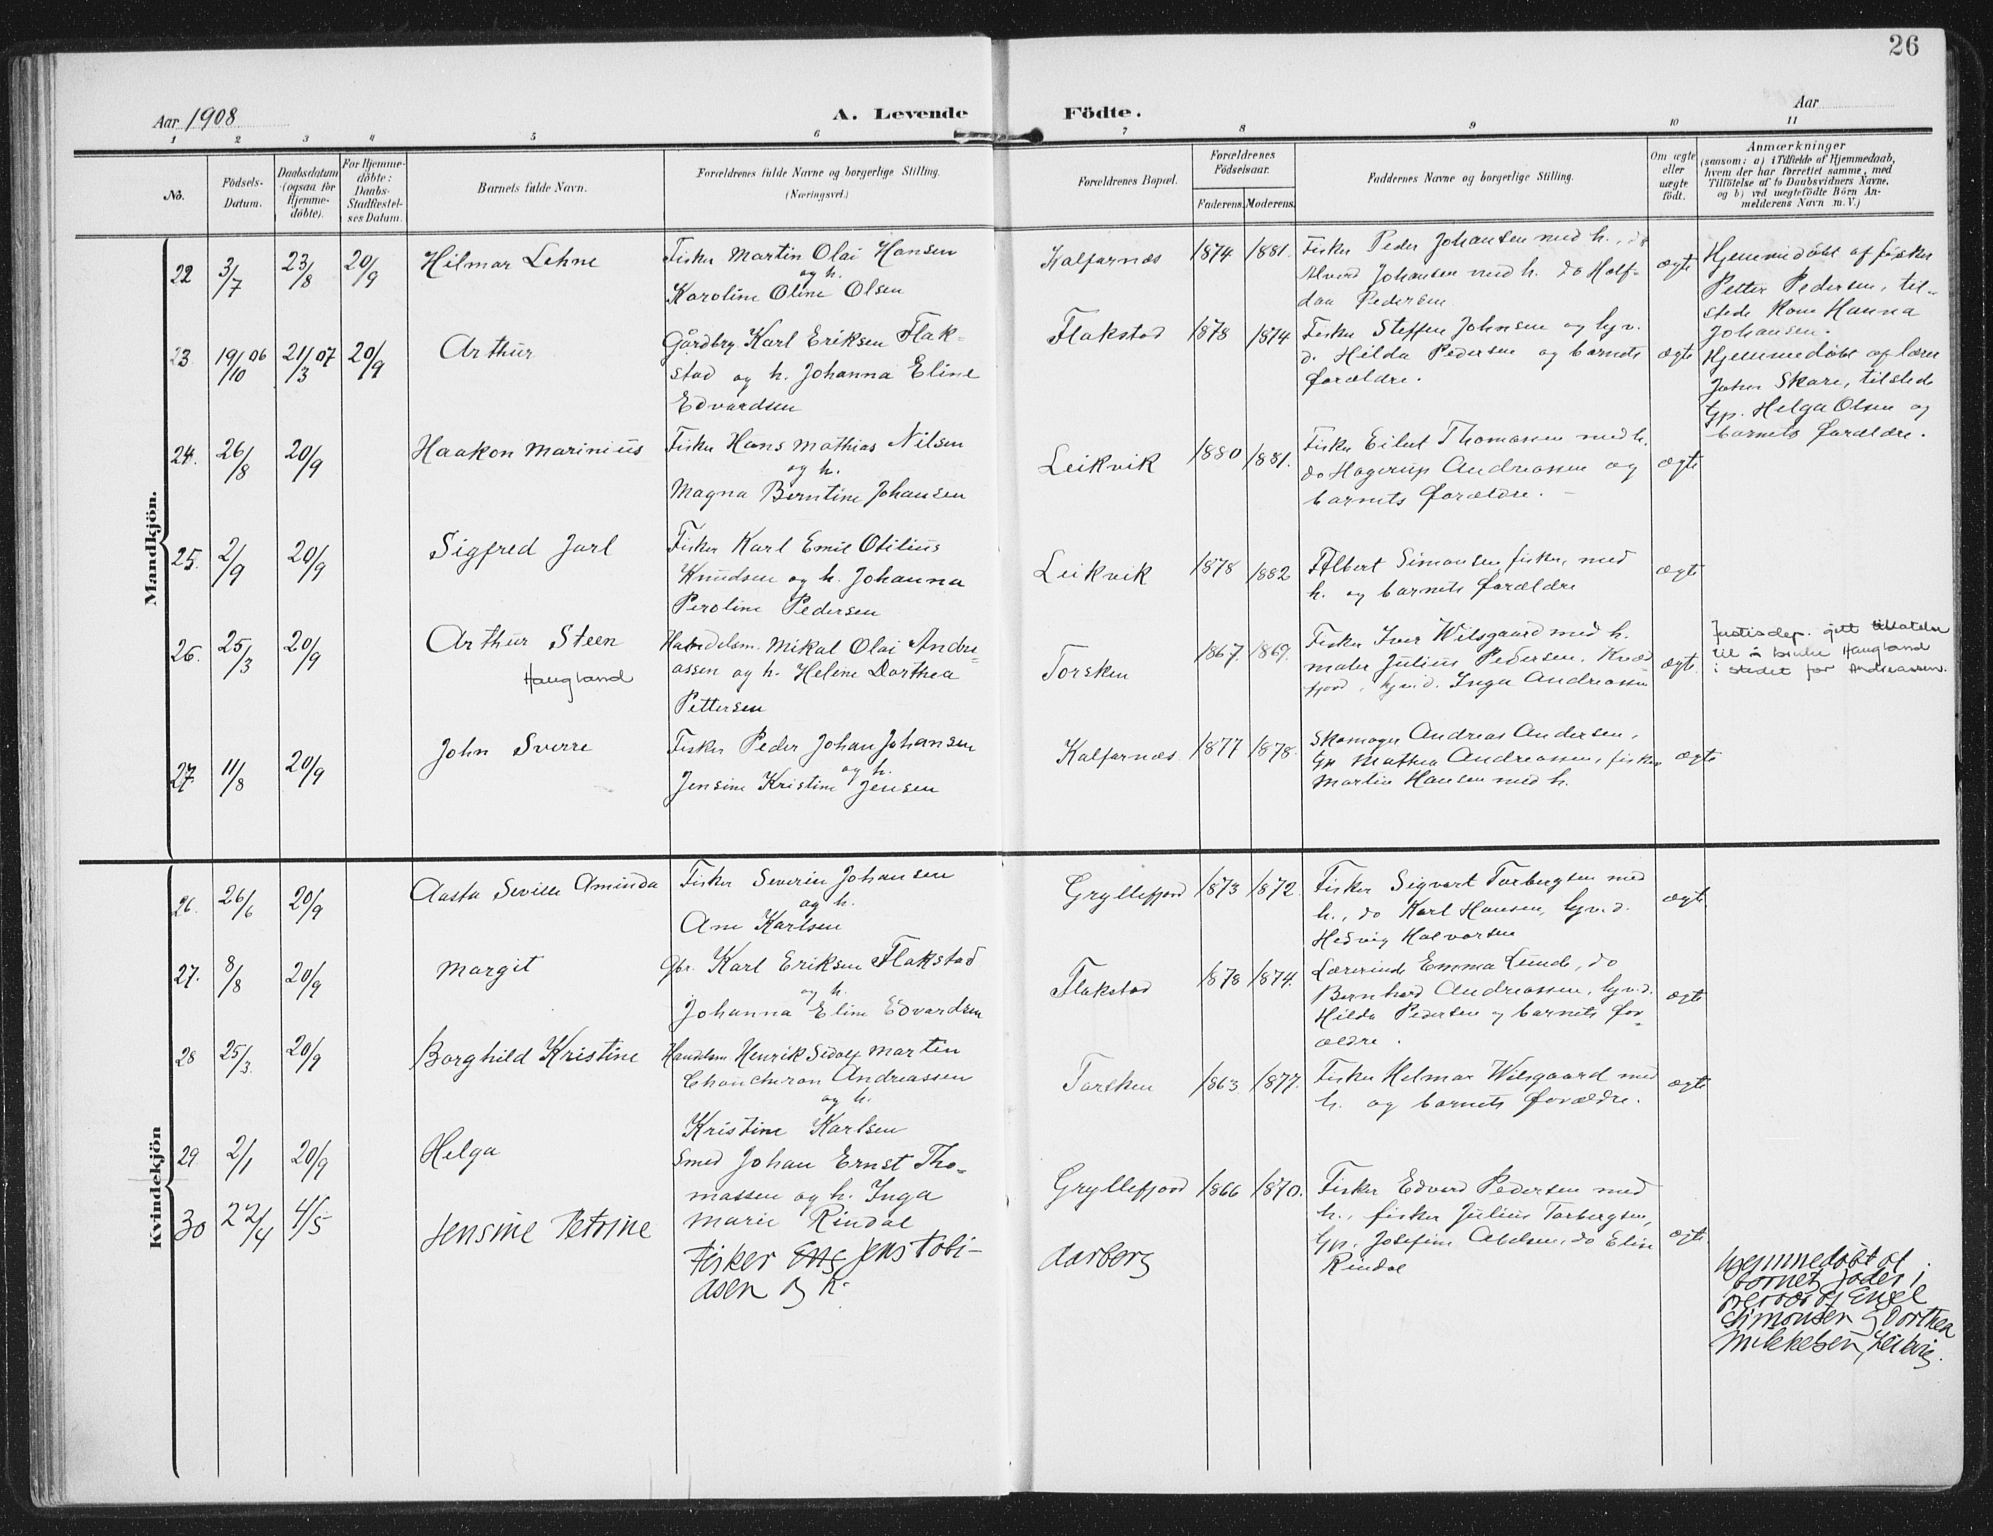 26
Aar 1908
A. Levende
Födte.
Aar
1 2 3 4 5 6 7 8 9 10 11
No.
Födsels-
Datum.
Daabsdatum
(ogsaa for
Hjemme-
döbte).
For Hjemme-
döbte:
Daabs-
Stadfæstel-
ses Datum.
Barnets fulde Navn.
Forældrenes fulde Navne og borgerlige Stilling.
(Næringsvei.)
Forældrenes Bopæl.
Forældrenes
Födselsaar.
Faderens. Moderens.
Faddernes Navne og borgerlige Stilling.
Om ægte
eller
uægte
födt.
Anmærkninger
(saasom: a) i Tilfælde af Hjemmedaab,
hvem der har forrettet samme, med
Tilföielse af to Daabsvidners Navne,
og b) ved uegtefödte Börn An-
melderens Navn m. V.)
Mandkjön.
22 3/7 23/8 20/9 Hilmar Lehne
Fisker Martin Olai Hansen
og h.
Karoline Oline Olsen
Kalfarnæs 1874 1881.
Fisker Peder Johansen med h., do
Alverd Johansen med h. do Half-
dan Pedersen
ægte
Hjemmedøbt af fisker
Petter Pedersen, til-
stede Kone Hanna
Johansen.
23 19/10 06 21/3 07 20/9 Arthur
Gårdbr. Karl Eriksen Flak-
stad og h. Johanna Eline
Edvardsen
Flakstad 1878 1874
Fisker Steffen Johnsen og hv.
d. Hilda Pedersen og barnets
forældre.
ægte
Hjemmedøbt af lærer
Johan Skare, tilstede
Gp. Helga Olsen og
barnets forældre.
24. 26/8 20/9 Haakon Marinius
Fisker Hans Mathias Nilsen
og h.
Magna Berntine Johansen
Leikvik 1880 1881.
Fisker Eilert Thomassen med h.
do Hagerup Andreassen og
barnets forældre. -
ægte
25. 2/9 20/9 Sigfred Jarl
Fisker Karl Emil Otilius
Knudsen og h. Johanna
Peroline Pedersen
Leikvik 1878 1882
Albert Simonsen fisker, med
h. og barnets forældre
ægte
26. 25/3 20/9 Arthur Steen
Haugland
Handelsm. Mikal Olai Andre-
assen og h. Helene Dorthea
Pettersen
Torsken 1867. 1869.
Fisker Iver Wilsgaard med h.
maler Julius Pedersen, Kvæd-
fjord, hv. d. Inga Andreassen
ægte.
Justisdep. gitt tillatelse
til å bruke Haugland
i stedet for Andreassen.
27. 11/8 20/9 John Sverre
Fisker Peder Johan Johansen
og h.
Jensine Kristine Jensen
Kalfarnæs 1877 1878.
Skomager Andreas Andersen,
Gp Mathea Andreassen, fisker
Martin Hansen med h.
ægte
Kvindekjön
26. 26/6 20/9 Aasta Seville Aminda
Fisker Severin Johansen
og h.
Ane Karlsen
Gryllefjord 1873 1872.
Fisker Sigvart Torbergsen med
h., do Karl Hansen, hv. d.
Hedvig Halvorsen
ægte
27. 8/8 20/9 Margit
Gbr. Karl Eriksen Flakstad
og h.
Johanna Eline Edvardsen
Flakstad 1878 1874.
Lærerinde Emma Lunde, do
Bernhard Andreassen, hv. d.
Hilda Pedersen og barnets for-
ældre.
ægte
28 25/3. 20/9 Borghild Kristine
Handelsm. Henrik Sidolf Martin
Andreassen
og h.
Kristine Karlsen
Torsken 1863 1877.
Fisker Helmar Wilsgaard med
h. og barnets forældre.
ægte
29. 2/1 20/9 Helga
Smed Johan Ernst Tho-
massen og h. Inga
Marie Rindal
Gryllefjord 1866 1870.
Fisker Edvard Pedersen med
h., fisker Julius Torbergsen,
Gp. Josefine Abelsen, do Elin
Rindal
ægte
30 22/4 4/5 Jensine Petrine
Fisker Jens Tobi-
asen og h.
Aarberg
Hjemmedøbt af
barnets fader i
nærvær af Engel
Simonsen og Dorthea
Mikkelsen, Leikvig.